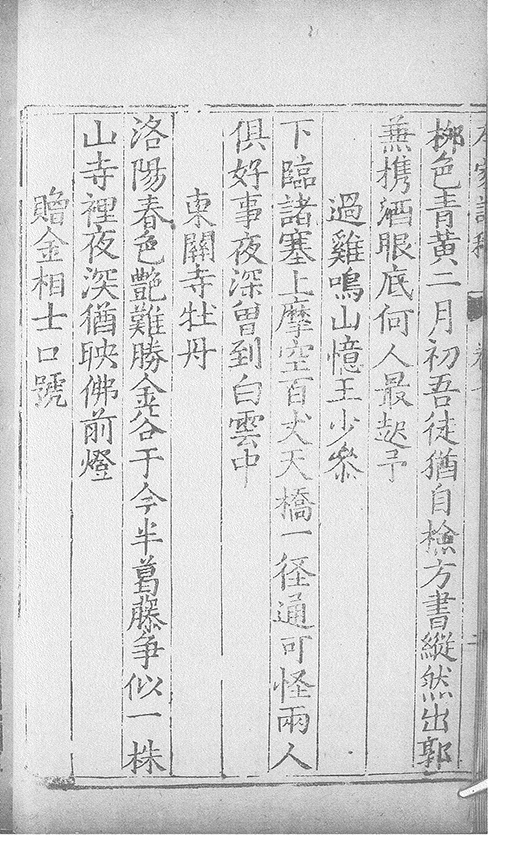 柳色青黃二月初吾徒猶自檢方書縱然出郭
兼携酒眼底何人最起予
過雞鳴山憶王少參
下臨諸塞上摩空百丈天橋一径通可怪兩人
俱好事夜深曽到白雲中
東關寺牡丹
洛陽春色艷難勝金谷于今半葛藤爭似一株
山寺裡夜深猶映佛前燈
贈金相士口號